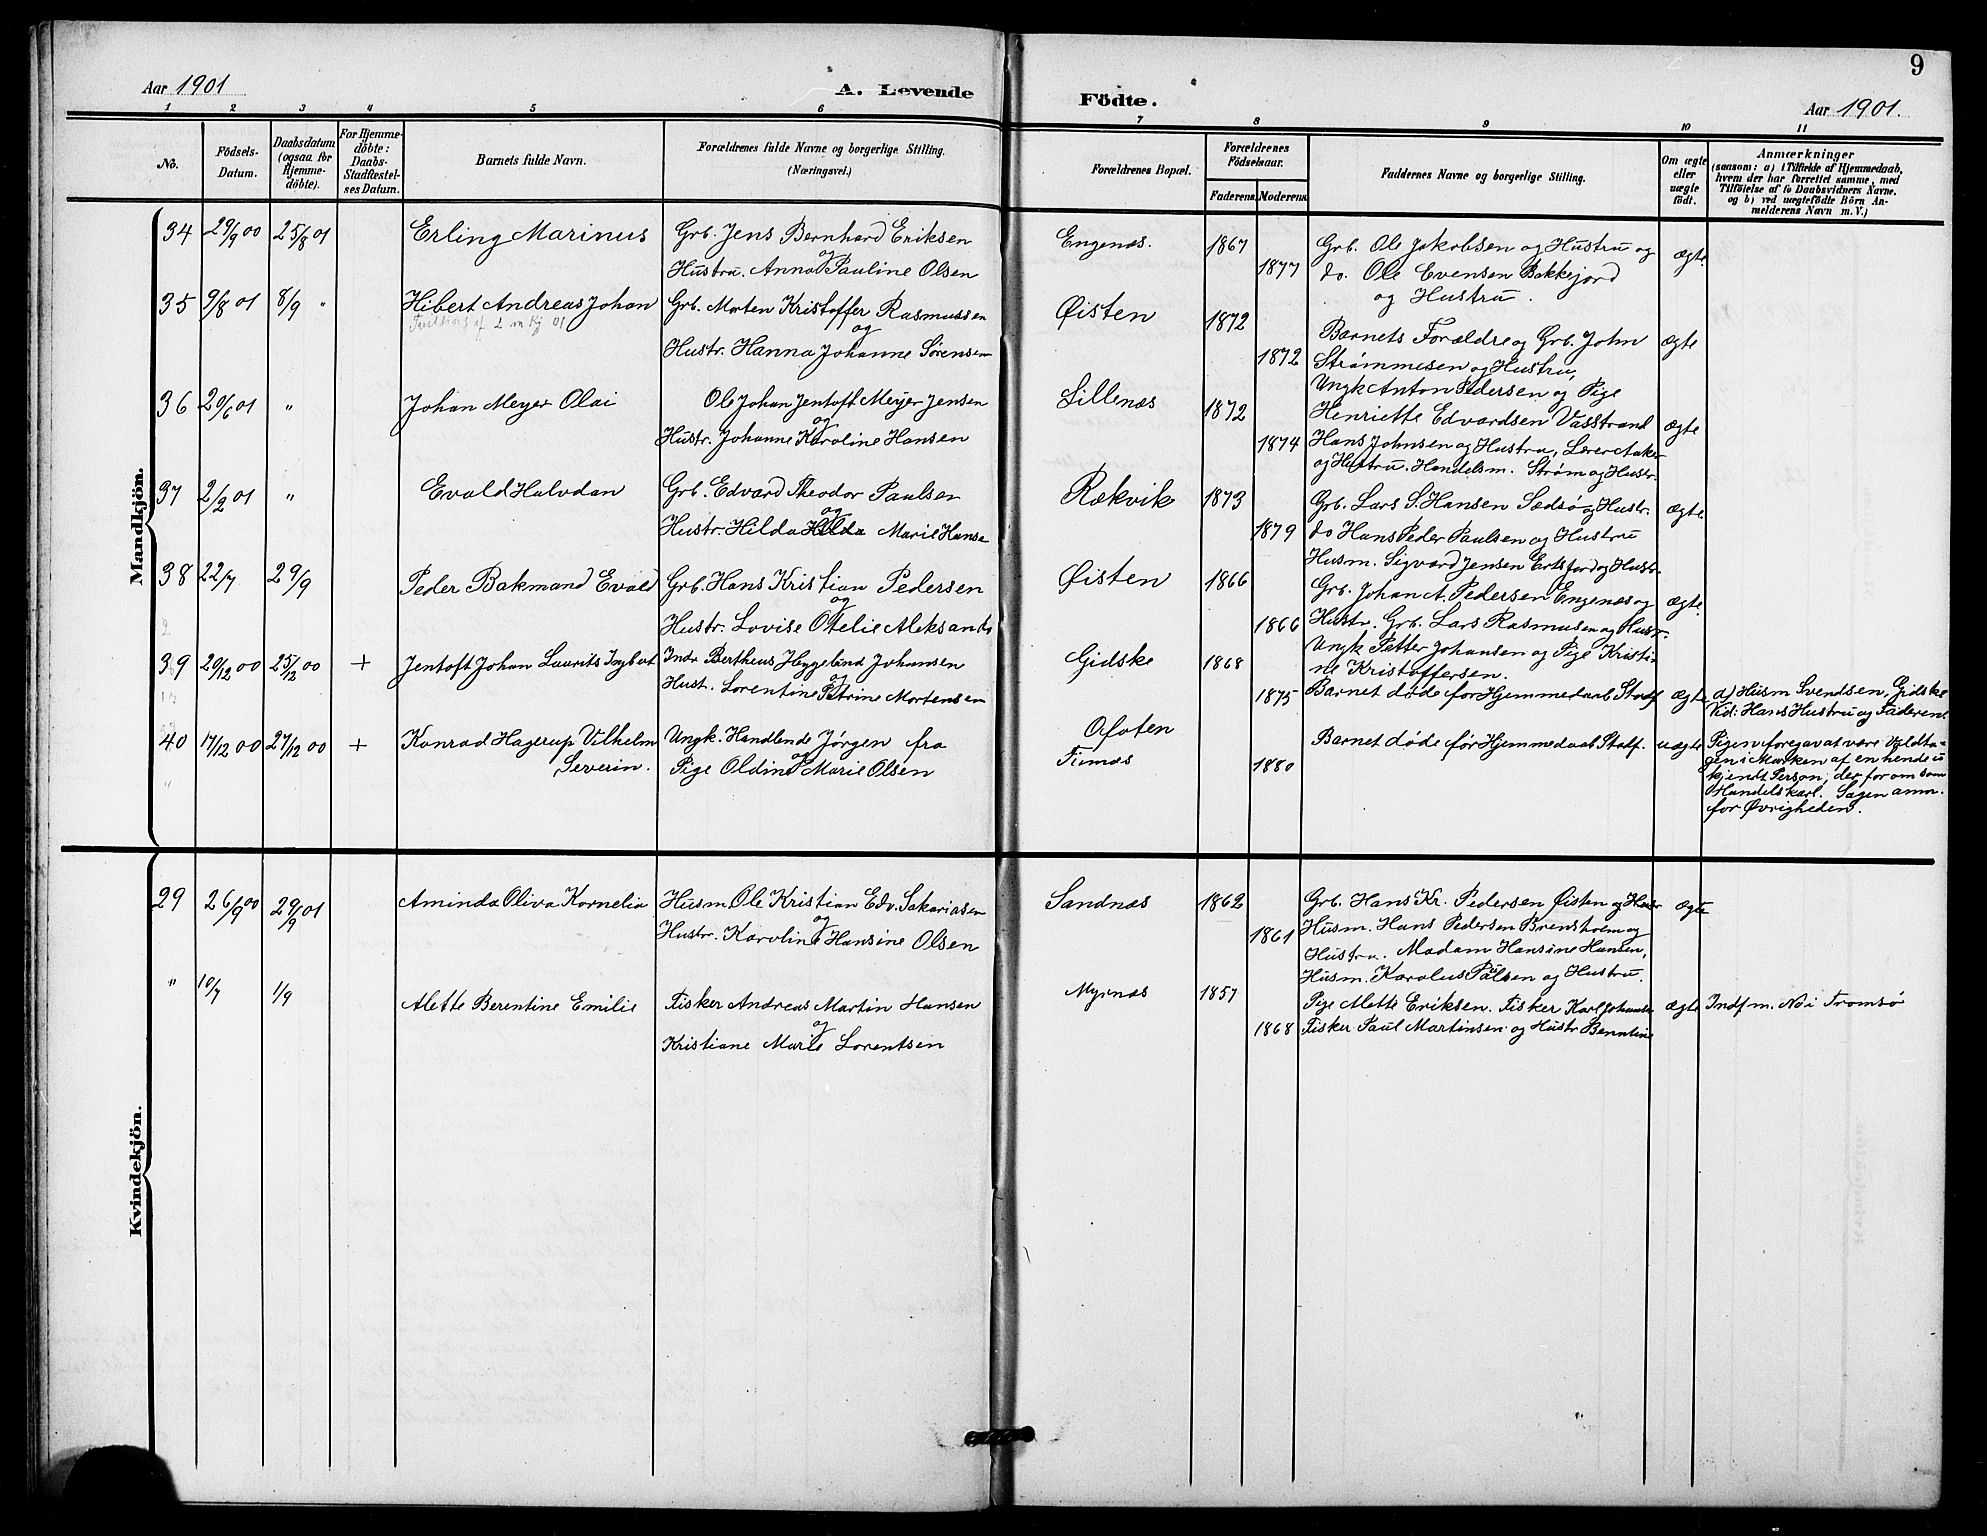 9
Aar 1901
A. Levende
Födte.
Aar 1901.
1 2 3 4 5 6 7 8 9 10 11
No.
Födsels-
Datum.
Daabsdatum
(ogsaa for
Hjemme-
döbte).
For Hjemme-
döbte:
Daabs-
Stadfæstel-
ses Datum.
Barnets fulde Navn.
Forældrenes fulde Navne og borgerlige Stilling.
(Næringsvei.)
Forældrenes Bopæl.
Forældrenes
Födselsaar.
Faderens. Moderens.
Faddernes Navne og borgerlige Stilling.
Om ægte
eller
uægte
födt.
Anmærkninger
(saasom: a) i Tilfælde af Hjemmedaab,
hvem der har forrettet samme, med
Tilföielse af to Daabsvidners Navne.
og b) ved uægtefödte Börn An-
melderens Navn m. V.)
Mandkjön.
34 29/9 00 25/8 01 Erling Marinus Grb. Jens Bernhard Eriksen
og
Hustru. Anna Pauline Olsen
Engenæs. 1867
1877
Grb. Ole Jakobsen og Hustru og
do. Ole Evensen Bakkejord
og Hustru.
ægte
35 9/8 01 8/9 " Hibert Andreas Johan Grb. Morten Kristoffer Rasmussen
og
Hustr. Hanna Johanne Sørensen
Øisten 1872
1872
Barnets Forældre og Grb. John
Strømmesen og Hustru,
ægte
36 20/6 01 " Johan Meyer Olai Ole Johan Jentoft Meyer Jensen
og
Hustr. Johanne Karoline Hansen
Lillenæs 1872
1874
Ungk Anton Pedersen og Pige
Henriette Edvardsen Vasstrand
Hans Johnsen og Hustru, Lærer
og Hustru. Handelsm. Strøm og Hustr.
ægte
37 2/2 01 " Evald Halvdan Grb. Edvard Theodor Paulsen
og
Hustr. Hilda Marie Hansen
Rækvik 1873
1879
Grb. Lars S. Hansen og Hustr.
do Hans Peder Paulsen og Hustru
Husm. Sigvard Jensen og Hustr.
ægte.
38 22/7 29/9 Peder Bakmand Evald Grb. Hans Kristian Pedersen
og
Hustr. Lovise Otelie
Øisten 1866
1866
Grb. Johan A. Pedersen Engenæs og
Hustr. Grb. Lars Rasmusen og Hustr.
Ungk Petter Johansen og Pige Kristi-
ne Kristoffersen.
ægte.
39 20/12 00 25/12 00 + Jentoft Johan Laurits Indr Bertheus Heggelund Johansen
og
Hust. Lorentine Petrine Mortensen
Gidske 1868
1875
Barnet døde før Hjemmedaab Stadf
ægte
a) Husm Svendsen, Gidske
Vid: Hans Hustru og Faderen.
40 17/12 00 27/12 00 + Konrad Hagerup Vilhelm
Severin.
Ungk. Handlende Jørgen fra
og
Pige Oldine Marie Olsen
Ofoten
1880
Barnet døde før Hjemmedaab Stadf.
uægte
Pigen foregav at være Voldta-
gen i Marken af en hende u
kjendt Person, der for om som
Handelskarl. Sagen anm.
for Øvrigheden.
Kvindekjön.
29 26/9 00 29/9 01 Aminda Oliva Kornelia Husm. Ole Kristian Edv. Sakariasen
og
Hustr. Karoline Hansine Olsen
Sandnæs 1862
1861
Grb. Hans Kr. Pedersen Øisten og Hustr
Husm. Hans Pedersen Brensholm og
Hustru. Madam Hansine Hansen,
Husm. Karolus Paulsen og Hustru.
ægte
" 10/7 1/9 Alette Berentine Emilie Fisker Andreas Martin Hansen
og
Kristiane Marie Lorentsen
1857
1868
Pige Alette Eriksen. Fisker Karl Johansen
Fisker Paul Martinsen og Hustr Berntine
ægte
Indf m. No i Tromsø